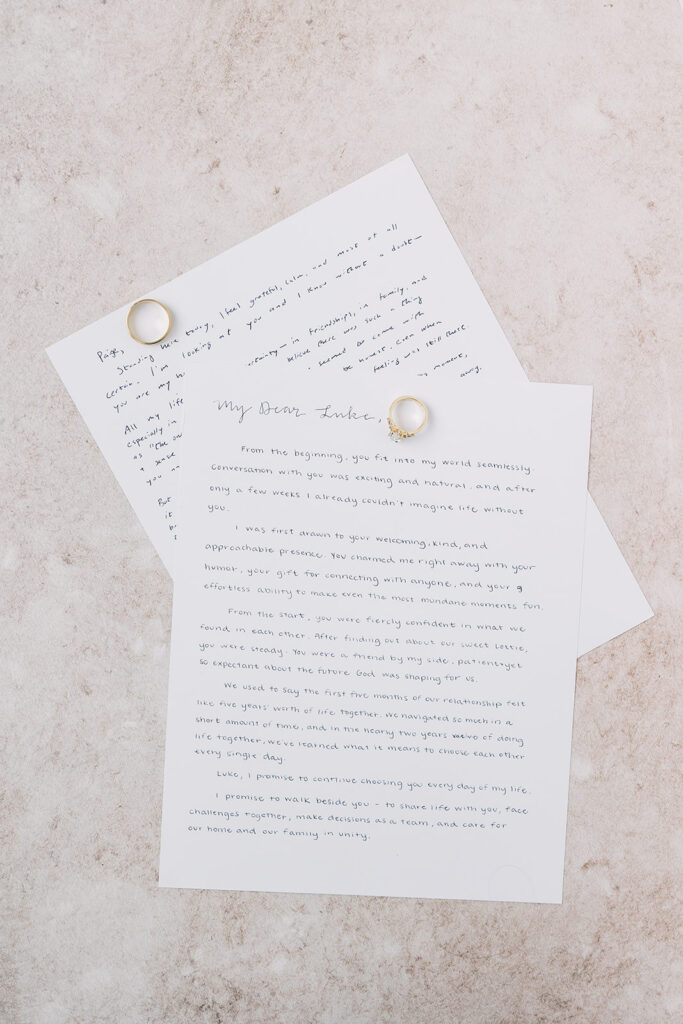 Paige,
Standing here today, I feel grateful, calm, and most of all
certain. I'm looking at you and I know without a doubt—
you are my
certainty — in friendships, in family, and
believe there was such a thing
seemed to come with
be honest. Even when
feeling was still there.
moment,
away.
All my life
especially in
as "the on
you
But
it
My Dear Luke,
From the beginning, you fit into my world seamlessly.
Conversation with you was exciting and natural, and after
only a few weeks I already couldn't imagine life without
you.
I was first drawn to your welcoming, kind, and
approachable presence. You charmed me right away with your
humor, your gift for connecting with anyone, and your
effortless ability to make even the most mundane moments fun.
From the start, you were fiercly confident in what we
found in each other. After finding out about our sweet Lottie,
you were steady. You were a friend by my side, patient yet
so expectant about the future God was shaping for us.
We used to say the first five months of our relationship felt
like five years' worth of life together. We navigated so much in a
short amount of time, and in the nearly two years of doing
life together, we've learned what it means to choose each other
every single day.
Luke, I promise to continue choosing you every day of my life.
I promise to walk beside you - to share life with you, face
challenges together, make decisions as a team, and care for
our home and our family in unity.